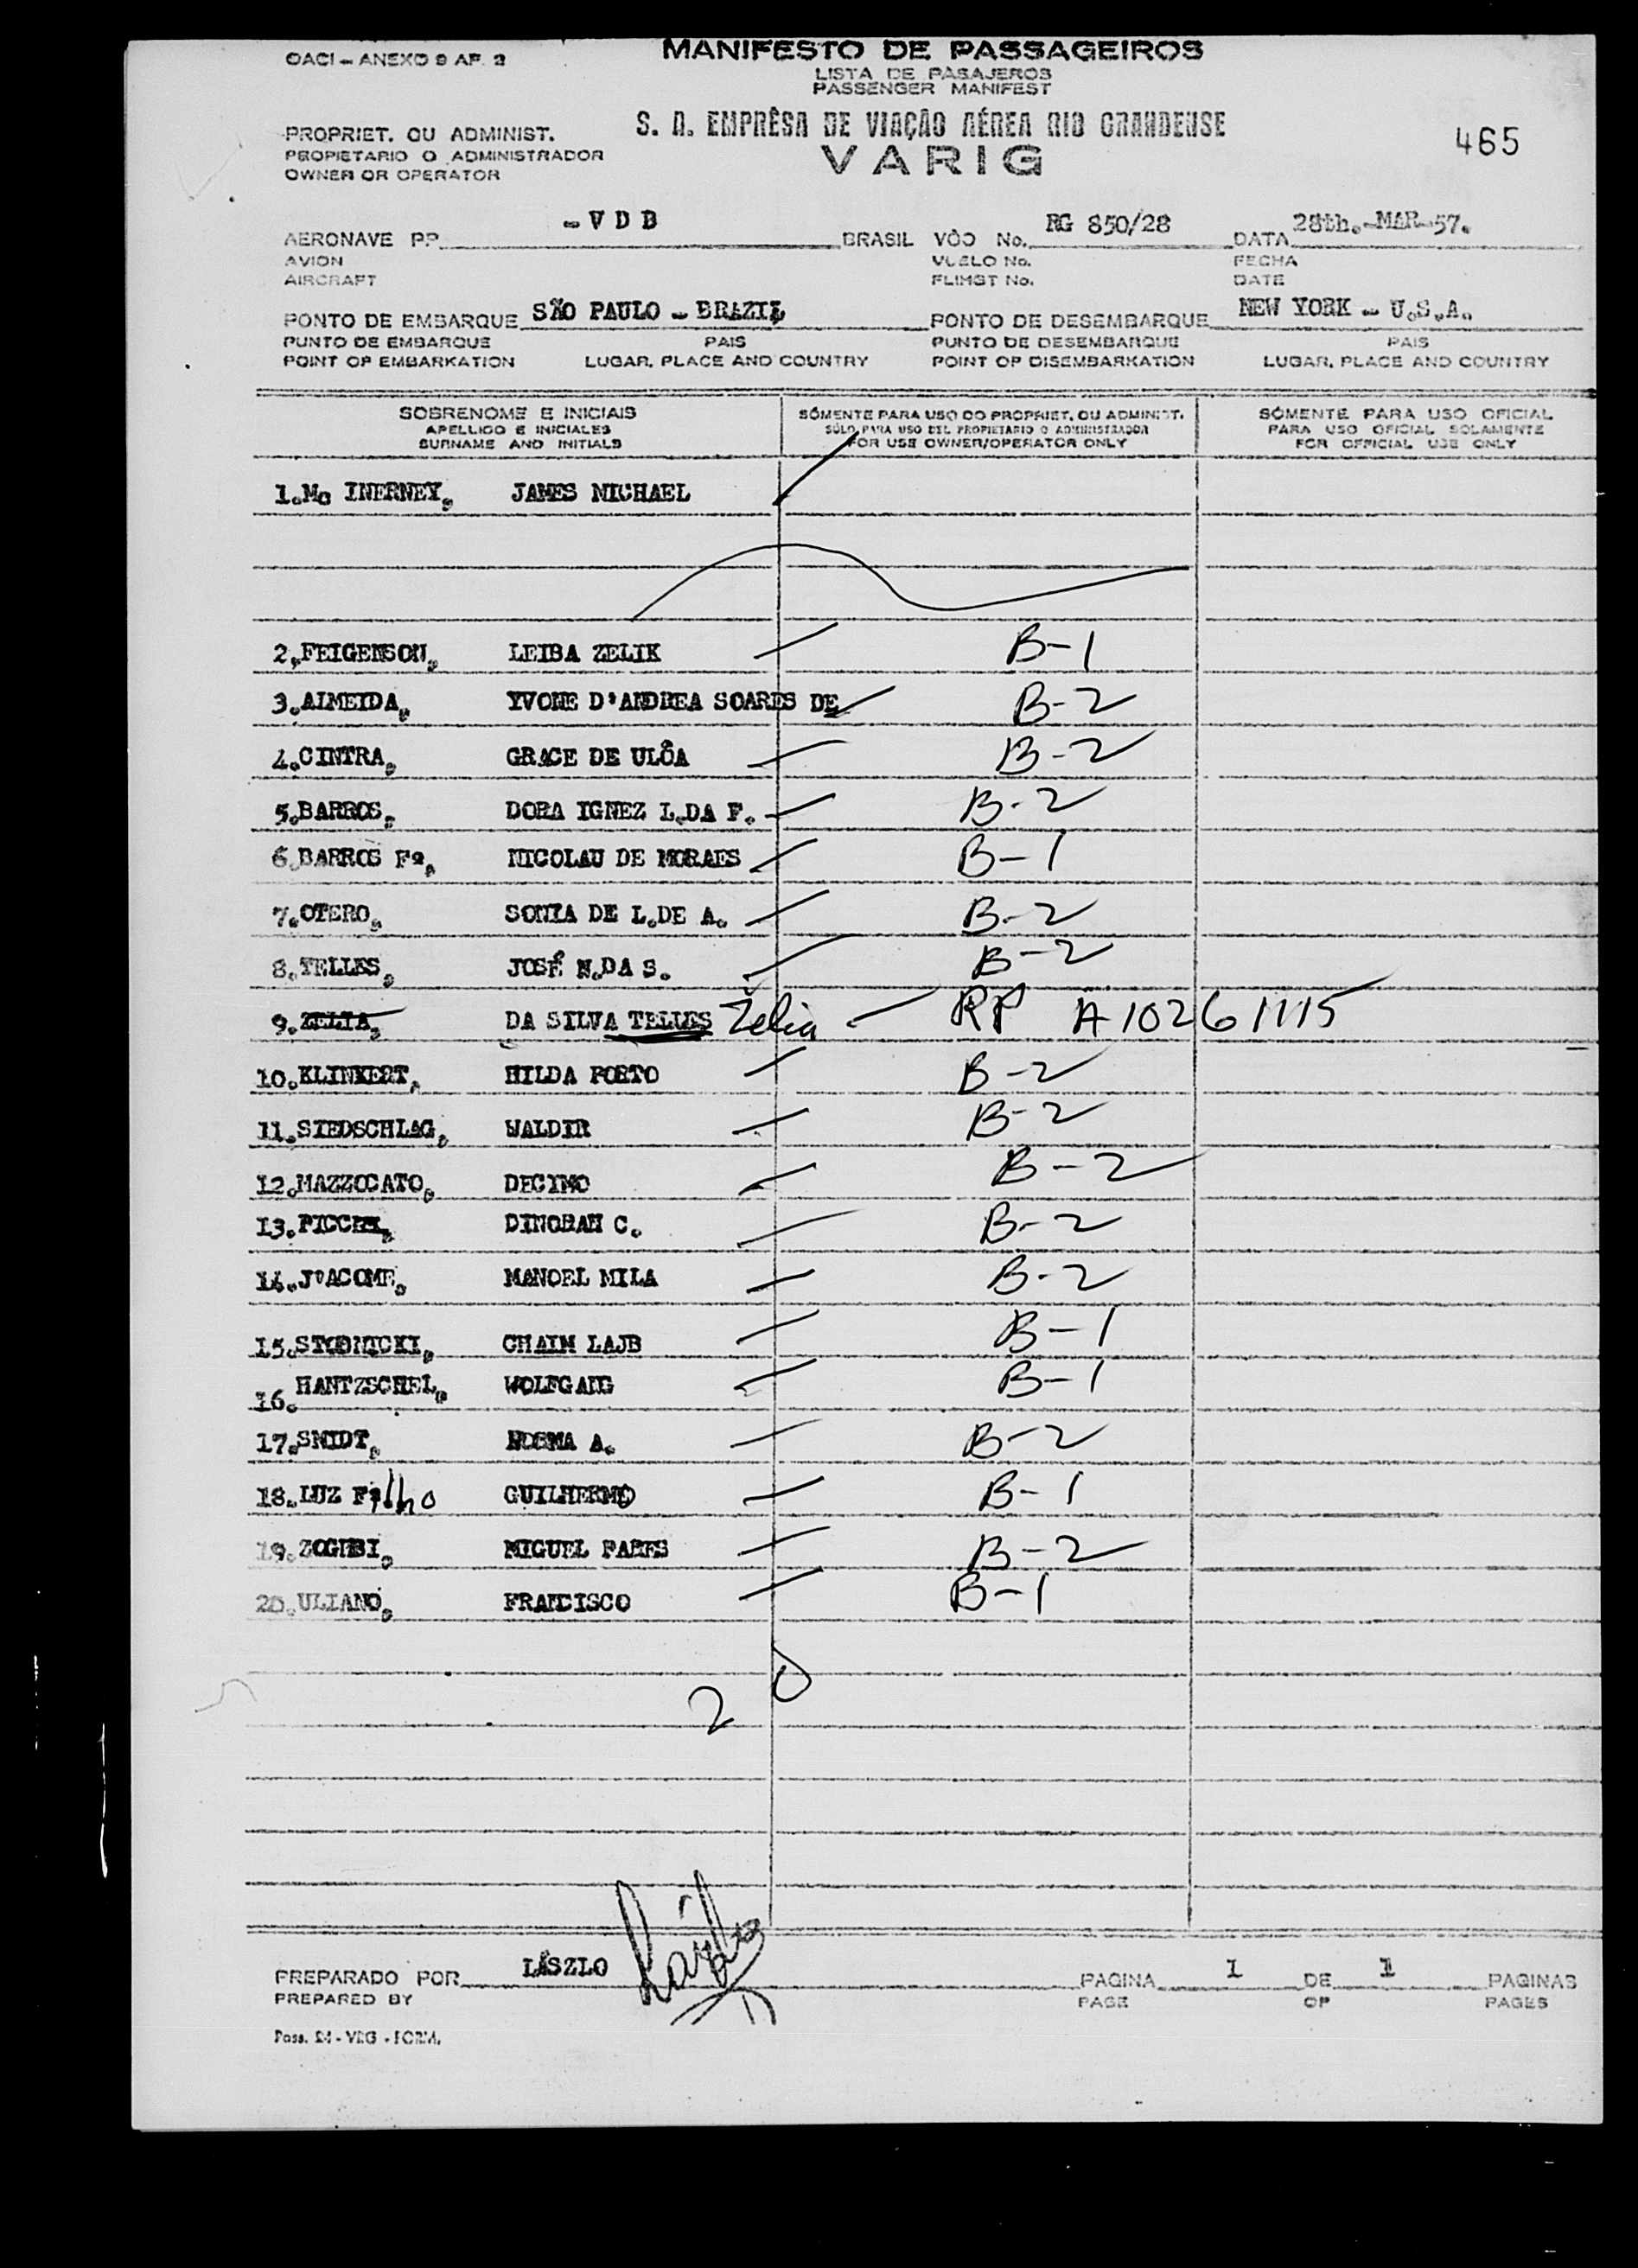 OACI - ANEXO 9 AP. 2
MANIFESTO DE PASSAGEIROS
LISTA DE PASAJEROS
PASSENGER MANIFEST
PROPRIET. OU ADMINIST.
PROPIETARIO O ADMINISTRADOR
OWNER OR OPERATOR
S. A. EMPRÊSA DE VIAÇÃO AÉREA RIO GRANDENSE
VARIG
465
AERONAVE PP -VDB BRASIL VÔO No. RG 850/28 DATA 28th.-MAR-57.
AVION VUELO No. FECHA
AIRCRAFT FLIHGT No. DATE
PONTO DE EMBARQUE SÃO PAULO - BRAZIL PONTO DE DESEMBARQUE NEW YORK - U.S.A.
PUNTO DE EMBARQUE PAIS PUNTO DE DESEMBARQUE PAIS
POINT OF EMBARKATION LUGAR, PLACE AND COUNTRY POINT OF DISEMBARKATION LUGAR, PLACE AND COUNTRY
SOBRENOME E INICIAIS SÓMENTE PARA USO DO PROPRIET. OU ADMINIST. SÓMENTE PARA USO OFICIAL
APELLIDO E INICIALES SÓLO PARA USO DEL PROPIETARIO O ADMINISTRADOR PARA USO OFICIAL SOLAMENTE
SURNAME AND INITIALS FOR USE OWNER/OPERATOR ONLY FOR OFFICIAL USE ONLY
1. Mc INERNEY, JAMES MICHAEL
2. FEIGENSON, LEIBA ZELIK B-1
3. ALMEIDA, YVONE D'ANDREA SOARES DE B-2
4. CINTRA, GRACE DE ULÔA B-2
5. BARROS, DORA IGNEZ L.DA F. B-2
6. BARROS Fº, NICOLAU DE MORAES B-1
7. OTERO, SONIA DE L.DE A. B-2
8. TELLES, JOSÉ N.DA S. B-2
9. ZELIA, DA SILVA TELLES Zelia RP A10261115
10. KLINKERT, HILDA PORTO B-2
11. SIEDSCHLAG, WALDIR B-2
12. MAZZOCATO, DECIMO B-2
13. DINORAH C. B-2
14. J'ACOME, MANOEL MILA B-2
15. CHAIM LAJB B-1
16. HANTZSCHEL, WOLFGANG B-1
17. SMIDT, NORMA A. B-2
18. LUZ Filho GUILHERMO B-1
19. ZOGHBI, MIGUEL FARES B-2
20. ULIANO, FRANCISCO B-1
20
PREPARADO POR LÁSZLO László PAGINA 1 DE 1 PAGINAS
PREPARED BY PAGE OF PAGES
Pass. 24 - VRG - FORM.